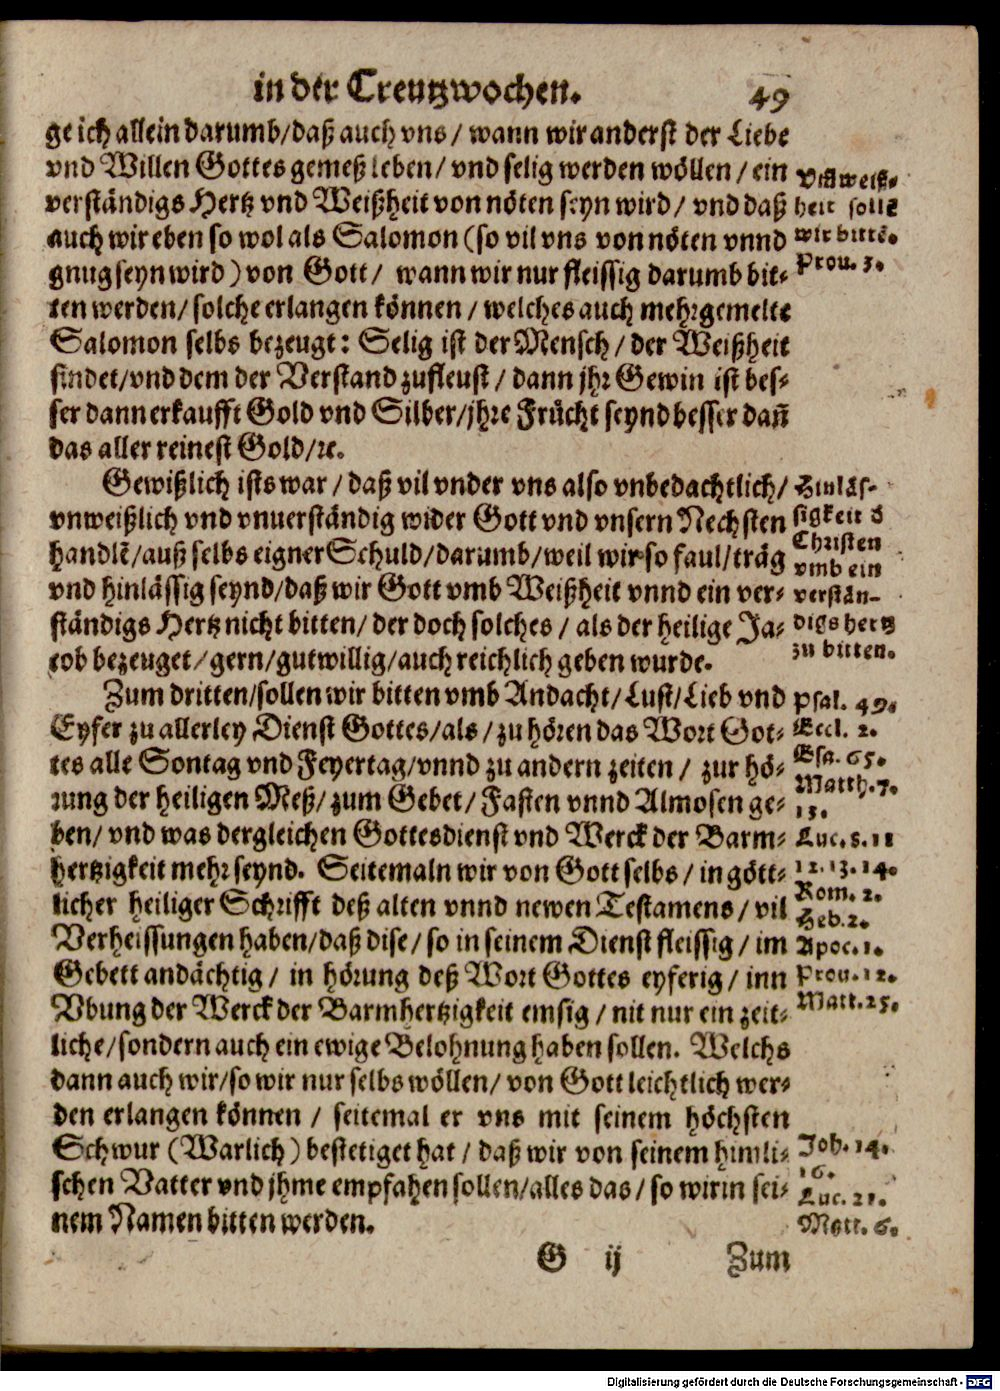 in der Creutzwochen. 49
ge ich allein darumb/daß auch vns/ wann wir anderst der Liebe
vnd Willen Gottes gemeß leben/ vnd selig werden wöllen/ ein
verständigs Hertz vnd Weißheit von nöten seyn wird/ vnd daß
auch wir eben so wol als Salomon (so vil vns von nöten vnnd
gnug seyn wird) von Gott/ wann wir nur fleissig darumb bit-
ten werden/ solche erlangen können/ welches auch mehrgemelte
Salomon selbs bezeugt: Selig ist der Mensch/ der Weißheit
findet/vnd dem der Verstand zufleust/ dann jhr Gewin ist bes-
ser dann erkaufft Gold vnd Silber/jhre Frücht seynd besser dañ
das aller reinest Gold/ꝛc.
Vmb weiß-
heit solle
wir bittē.
Prou. 3.
Gewißlich ists war/ daß vil vnder vns also vnbedachtlich/
vnweißlich vnd vnuerständig wider Gott vnd vnsern Nechsten
handlē/auß selbs eigner Schuld/darumb/weil wir so faul/träg
vnd hinlässig seynd/daß wir Gott vmb Weißheit vnnd ein ver-
ständigs Hertz nicht bitten/ der doch solches/ als der heilige Ja-
cob bezeuget/gern/gutwillig/auch reichlich geben wurde.
Hinläs-
sigkeit d
Christen
vmb ein
verstän-
digs hertz
zu bitten.
Zum dritten/sollen wir bitten vmb Andacht/Lust/Lieb vnd
Eyfer zu allerley Dienst Gottes/als/zu hören das Wort Got-
tes alle Sontag vnd Feyertag/vnnd zu andern zeiten/ zur hö-
rung der heiligen Meß/ zum Gebet/ Fasten vnnd Almosen ge-
ben/ vnd was dergleichen Gottesdienst vnd Werck der Barm-
hertzigkeit mehr seynd. Seitemaln wir von Gott selbs/ in gött-
licher heiliger Schrifft deß alten vnnd newen Testamens/ vil
Verheissungen haben/daß dise/ so in seinem Dienst fleissig/ im
Gebett andächtig/ in hörung deß Wort Gottes eyferig/ inn
Vbung der Werck der Barmhertzigkeit emsig/ nit nur ein zeit-
liche/sondern auch ein ewige Belohnung haben sollen. Welchs
dann auch wir/so wir nur selbs wöllen/ von Gott leichtlich wer-
den erlangen können/ seitemal er vns mit seinem höchsten
Schwur (Warlich) bestetiget hat/ daß wir von seinem himli-
schen Vatter vnd jhme empfahen sollen/alles das/ so wir in sei-
nem Namen bitten werden.
Psal. 49.
Eccl. 2.
Esa. 65.
Matth. 7.
13.
Luc. 5. 11
12. 13. 14.
Rom. 2.
Heb. 2.
Apoc. 1.
Prou. 12.
Matt. 25.
Joh. 14.
16.
Luc. 21.
Matt. 6.
G ij Zum
Digitalisierung gefördert durch die Deutsche Forschungsgemeinschaft - DFG